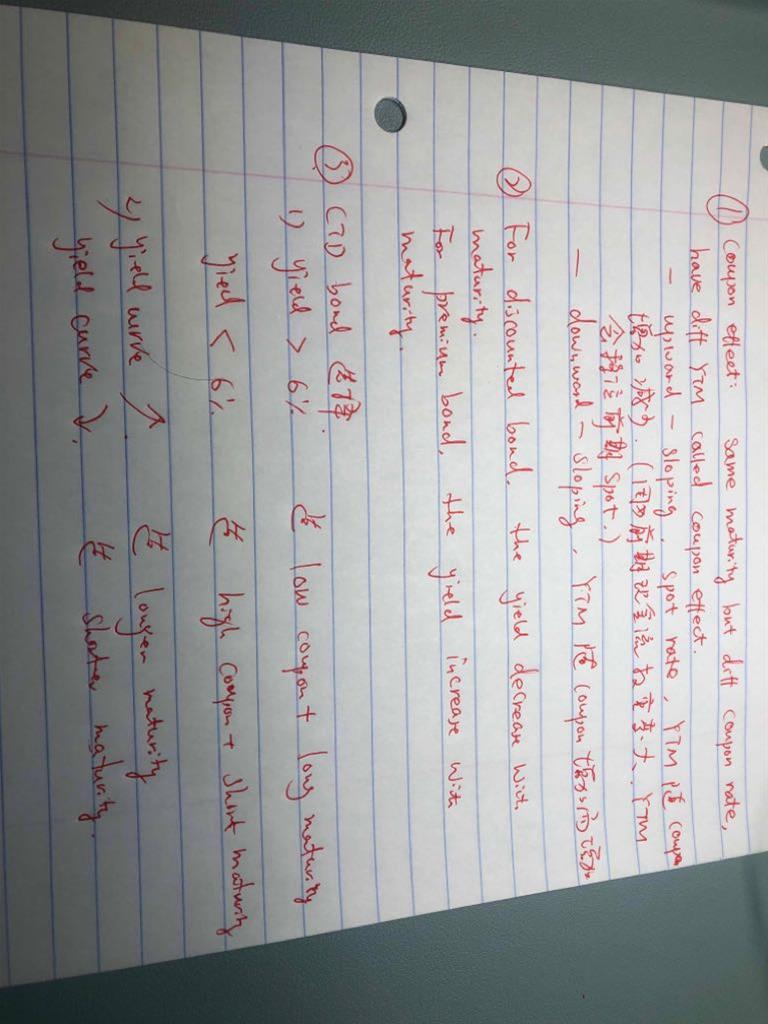 ① Coupon effect: same maturity but diff coupon rate,
have diff YTM called coupon effect.
- upward - sloping, spot rate, YTM 随 coupon
增加减少. (因为前期现金流权重大, YTM
会接近前期 spot.)
- downward - sloping, YTM 随 coupon 增加而增加
② For discounted bond, the yield decrease with
maturity.
For premium bond, the yield increase with
maturity.
③ CTD bond 选择:
1) yield > 6% 选 low coupon + long maturity
yield < 6% 选 high coupon + short maturity
2) yield curve ↗ 选 longer maturity
yield curve ↘. 选 shorter maturity.